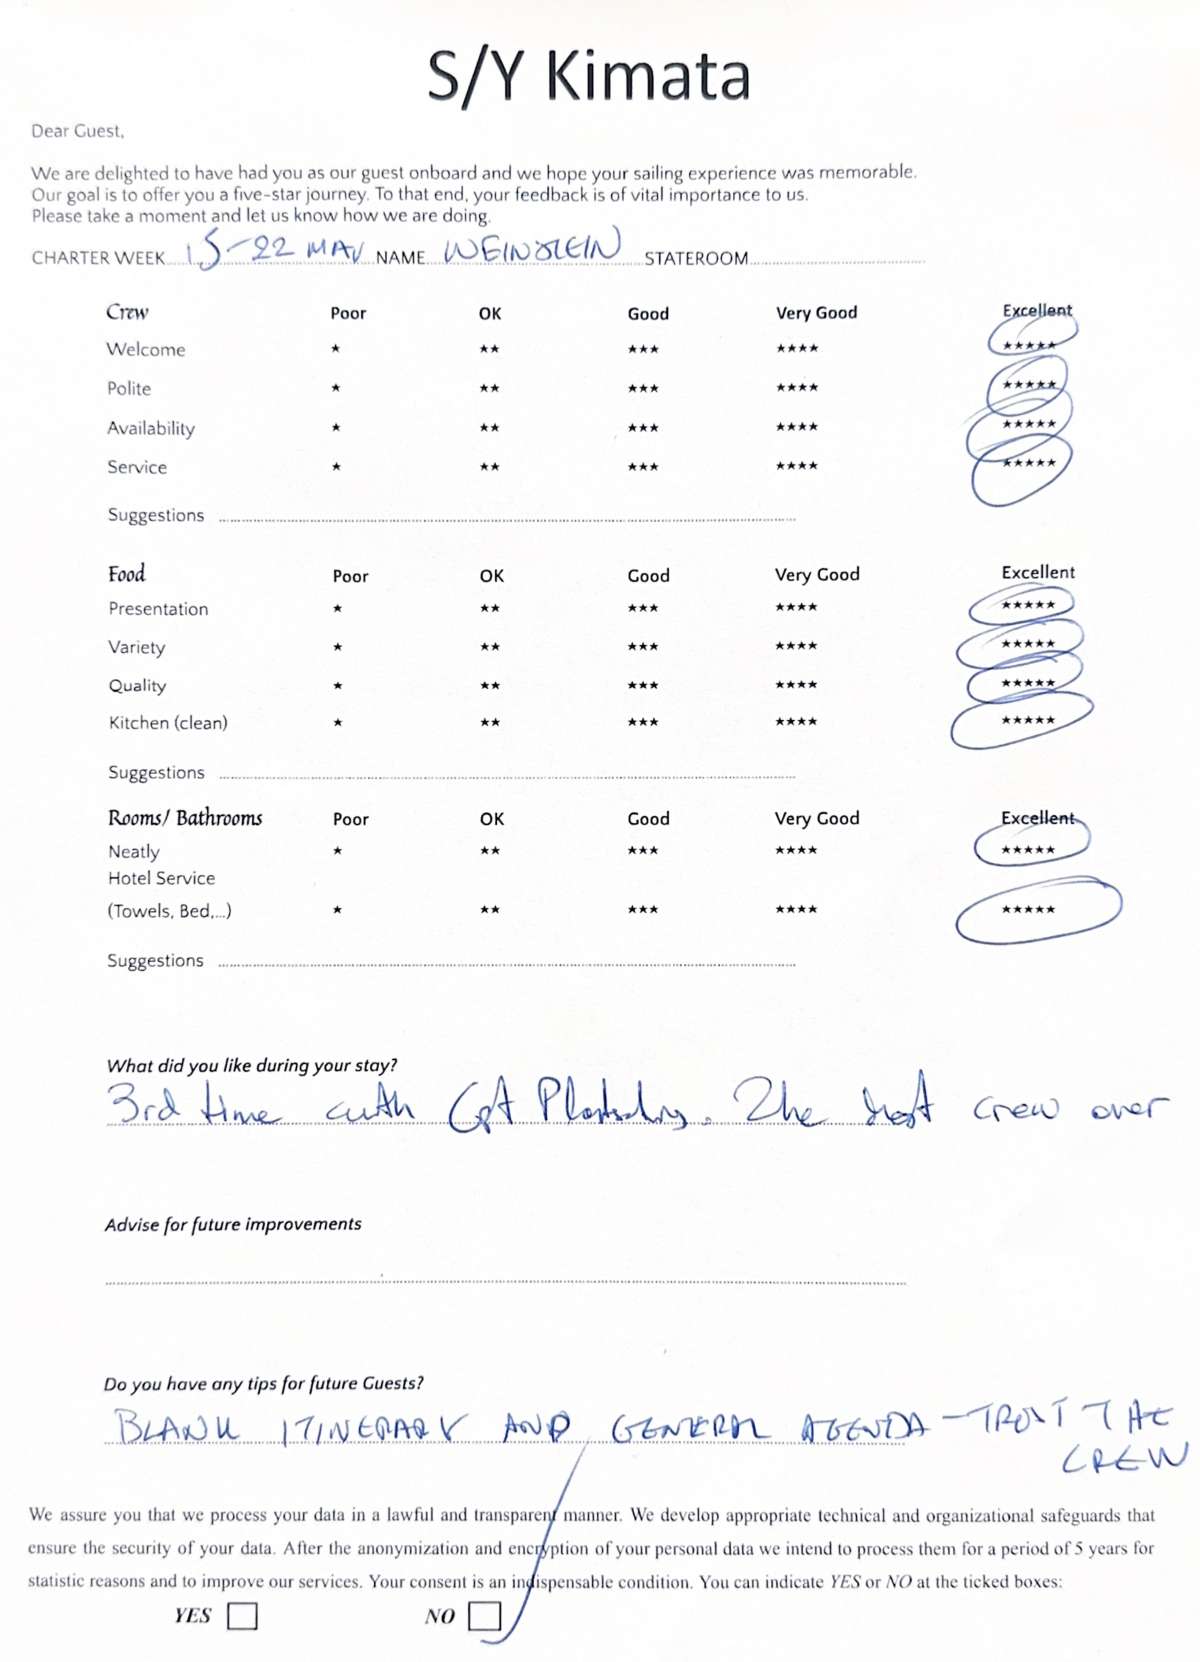 S/Y Kimata
Dear Guest,
We are delighted to have had you as our guest onboard and we hope your sailing experience was memorable.
Our goal is to offer you a five-star journey. To that end, your feedback is of vital importance to us.
Please take a moment and let us know how we are doing.
CHARTER WEEK 15-22 MAY NAME WEINSTEIN STATEROOM
Crew Poor OK Good Very Good Excellent
Welcome ★ ★★ ★★★ ★★★★ ★★★★★
Polite ★ ★★ ★★★ ★★★★ ★★★★★
Availability ★ ★★ ★★★ ★★★★ ★★★★★
Service ★ ★★ ★★★ ★★★★ ★★★★★
Suggestions
Food Poor OK Good Very Good Excellent
Presentation ★ ★★ ★★★ ★★★★ ★★★★★
Variety ★ ★★ ★★★ ★★★★ ★★★★★
Quality ★ ★★ ★★★ ★★★★ ★★★★★
Kitchen (clean) ★ ★★ ★★★ ★★★★ ★★★★★
Suggestions
Rooms/ Bathrooms Poor OK Good Very Good Excellent
Neatly ★ ★★ ★★★ ★★★★ ★★★★★
Hotel Service
(Towels, Bed,...) ★ ★★ ★★★ ★★★★ ★★★★★
Suggestions
What did you like during your stay?
3rd time with Cpt The best crew over
Advise for future improvements
Do you have any tips for future Guests?
BLANK ITINERARY AND GENERAL AGENDA - TRUST THE
CREW
We assure you that we process your data in a lawful and transparent manner. We develop appropriate technical and organizational safeguards that
ensure the security of your data. After the anonymization and encryption of your personal data we intend to process them for a period of 5 years for
statistic reasons and to improve our services. Your consent is an indispensable condition. You can indicate YES or NO at the ticked boxes:
YES NO